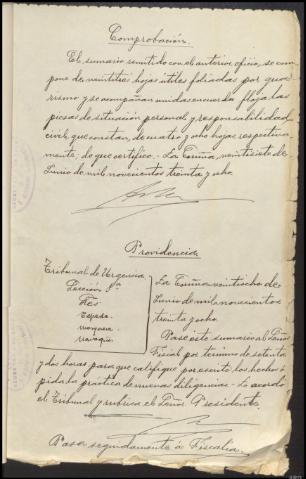 Comprobación.
El sumario remitido con el anterior oficio, se com-
pone de veintitrés hojas útiles foliadas por guar
rismo y se acompañan unidas en cuerda floja las
piezas de situación personal y responsabilidad
civil, que constan de cuatro y ocho hojas respectiva-
mente; de que certifico. - La Coruña, veintisiete de
Junio de mil novecientos treinta y ocho
Providencia
Tribunal de Urgencia
Sección 1ª
Sres
La Coruña veintiocho de
Junio de mil novecientos
treinta y ocho.
Pase este sumario al Señor
Fiscal por término de setenta
y dos horas para que califique por escrito los hechos ó
pida la práctica de nuevas diligencias. - Lo acordó
el Tribunal y rubrica el Señor Presidente,
Pasa seguidamente á Fiscalía.